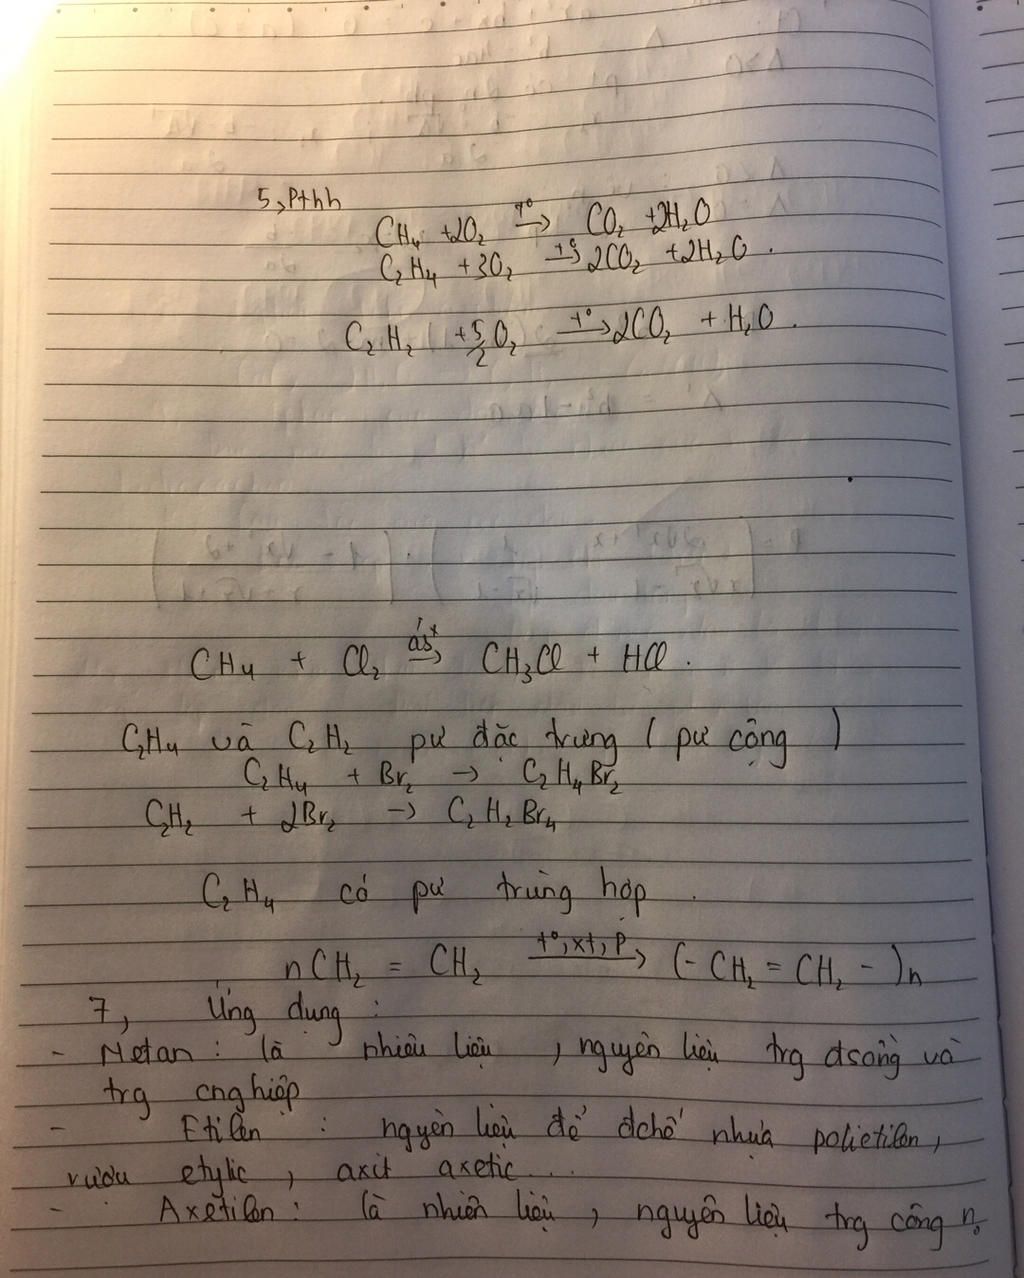 5, Pthh
CH₄ + 2O₂ →(t°) CO₂ + 2H₂O
C₂H₄ + 3O₂ →(t°) 2CO₂ + 2H₂O.
C₂H₂ + 5/2 O₂ →(t°) 2CO₂ + H₂O.
CH₄ + Cl₂ →(ást) CH₃Cl + HCl.
C₂H₄ và C₂H₂ pư đặc trưng (pư cộng)
C₂H₄ + Br₂ → C₂H₄Br₂
C₂H₂ + 2Br₂ → C₂H₂Br₄
C₂H₄ có pư trùng hợp.
nCH₂ = CH₂ →(t°, xt, P) (- CH₂ = CH₂ -)n
7, Ứng dụng:
- Metan: là nhiên liệu, nguyên liệu trg đsống và
trg cnghiệp
- Etilen: ngyên liệu để đchế nhựa polietilen,
rượu etylic, axit axetic...
- Axetilen: là nhiên liệu, nguyên liệu trg công n.